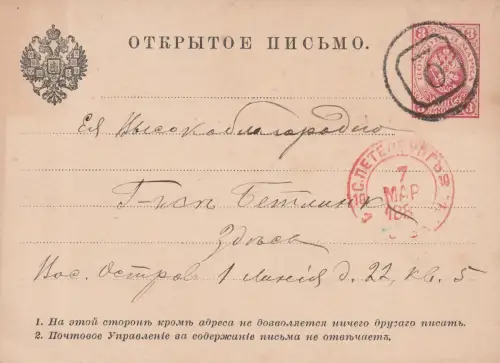 ОТКРЫТОЕ ПИСЬМО.
3 3
Ея Высокоблагородію
Г-жѣ Бетлингъ
Здѣсь
Вас. Остров 1 линія д. 22, кв. 5
С. ПЕТЕРБУРГЪ
7
МАР
188
1. На этой сторонѣ кромѣ адреса не дозволяется ничего другаго писать.
2. Почтовое Управленіе за содержаніе письма не отвѣчаетъ.